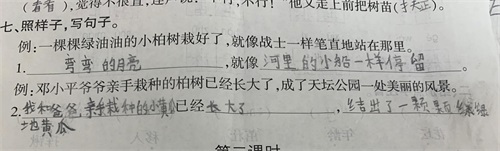 (看看),觉得不很直,连 不行,不行!”他又走上前把树苗(扶正)。
七、照样子,写句子。
例:一棵棵绿油油的小柏树栽好了,就像战士一样笔直地站在那里。
1. 弯弯的月亮 就像 河里的小船一样停留 。
例:邓小平爷爷亲手栽种的柏树已经长大了,成了天坛公园一处美丽的风景。
2. 我和爸爸亲手栽种的小黄瓜已经 长大了 ,结出了一颗颗绿绿
地黄瓜
第二课时